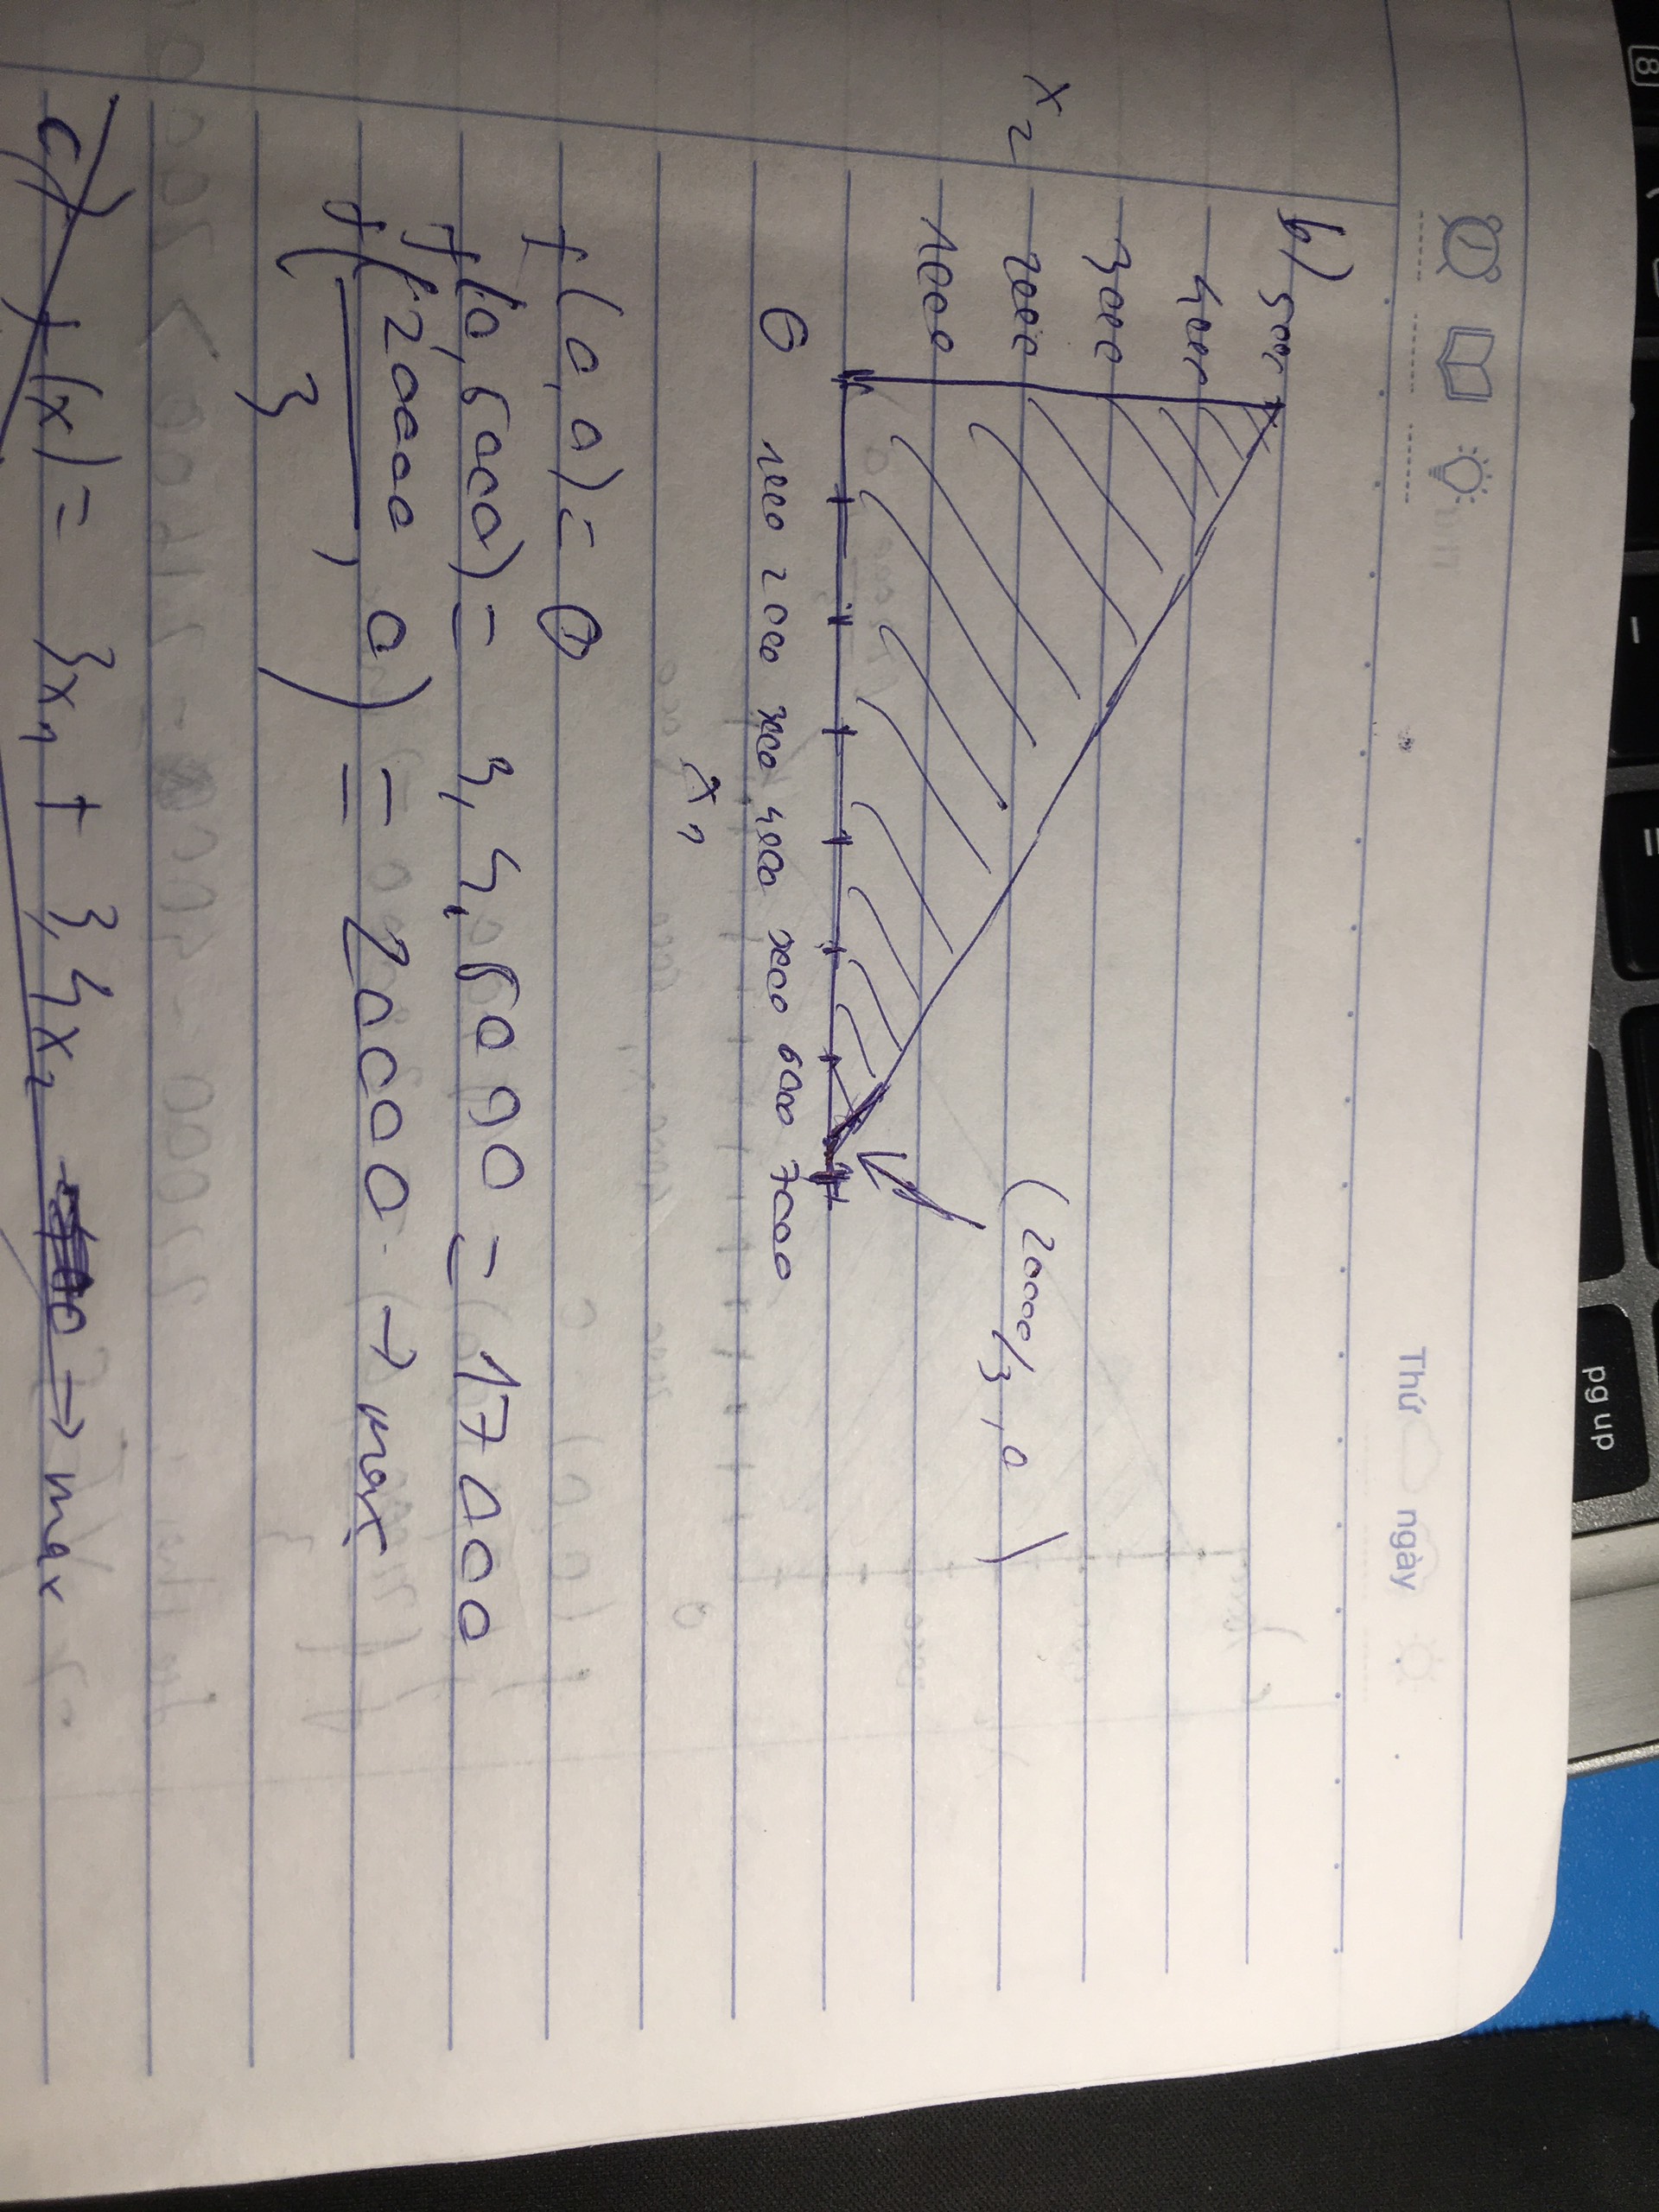 Thứ ngày
b) 5000
4000
3000
x2 2000
1000
(20000/3, 0)
0 1000 2000 3000 4000 5000 6000 7000
x1
f(0,0) = 0
f(0,5000) = 3,4.5000 = 17000
f(20000/3, 0) = 20000 → max
c) f(x) = 3x1 + 3,4x2 → max
pg up
8